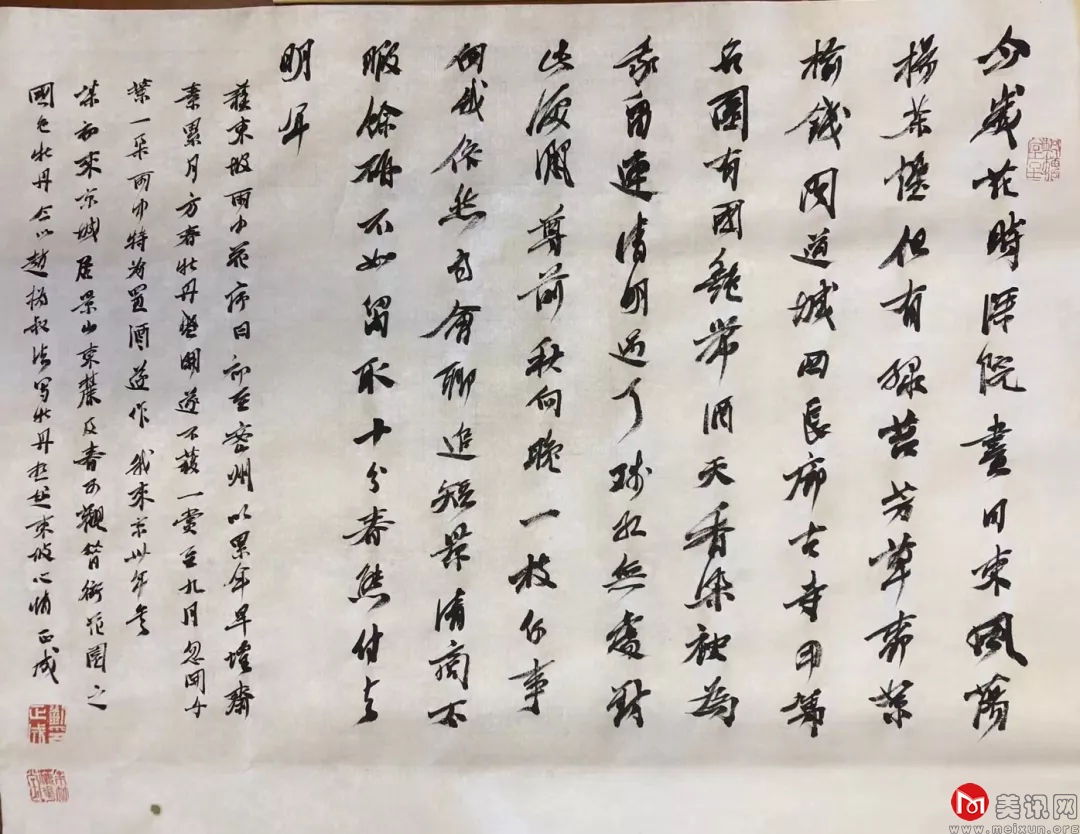 今歲花時深院盡日東風蕩
揚茶煙但有綠苔芳草
榆錢聞道城西長廊古寺甲第
名園有國艷帶酒天香染袂為
我留連清明過了殘紅無處對
此淚灑尊前秋向晚一枝何事
向我依然高會聊追短景清商不
暇餘妍不如留取十分春態付與
明年
蘇東坡雨中花序曰初至密州以累年旱蝗齋
素累月方春牡丹盛開遂不獲一賞至九月忽開千
葉一朵雨中特為置酒遂作 我來京卅年矣
初來京城居景山東麓及春可觀街花園之
國色牡丹今以趙撝叔法寫牡丹想起東坡心情正成
美讯网
www.meixun.org